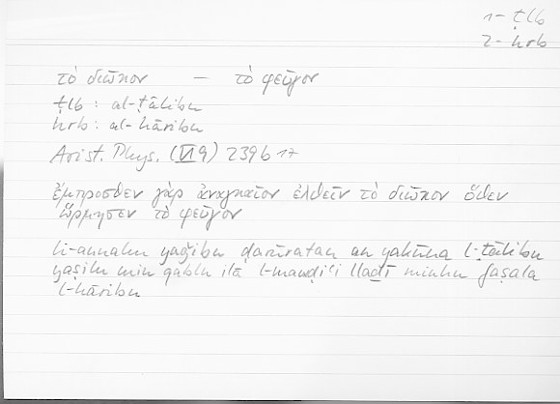 1- ṭlb
2- hrb
τὸ διῶκον — τὸ φεῦγον
ṭlb : al-ṭālibu
hrb : al-hāribu
Arist. Phys. (VI 9) 239b 17
ἔμπροσθεν γὰρ ἀναγκαῖον ἐλθεῖν τὸ διῶκον ὅθεν
ὥρμησεν τὸ φεῦγον
li-annahu yaǧibu ḍarūratan an yakūna l-ṭālibu
yaṣilu min qablu ilā l-mauḍiʿi llaḏī minhu faṣala
l-hāribu